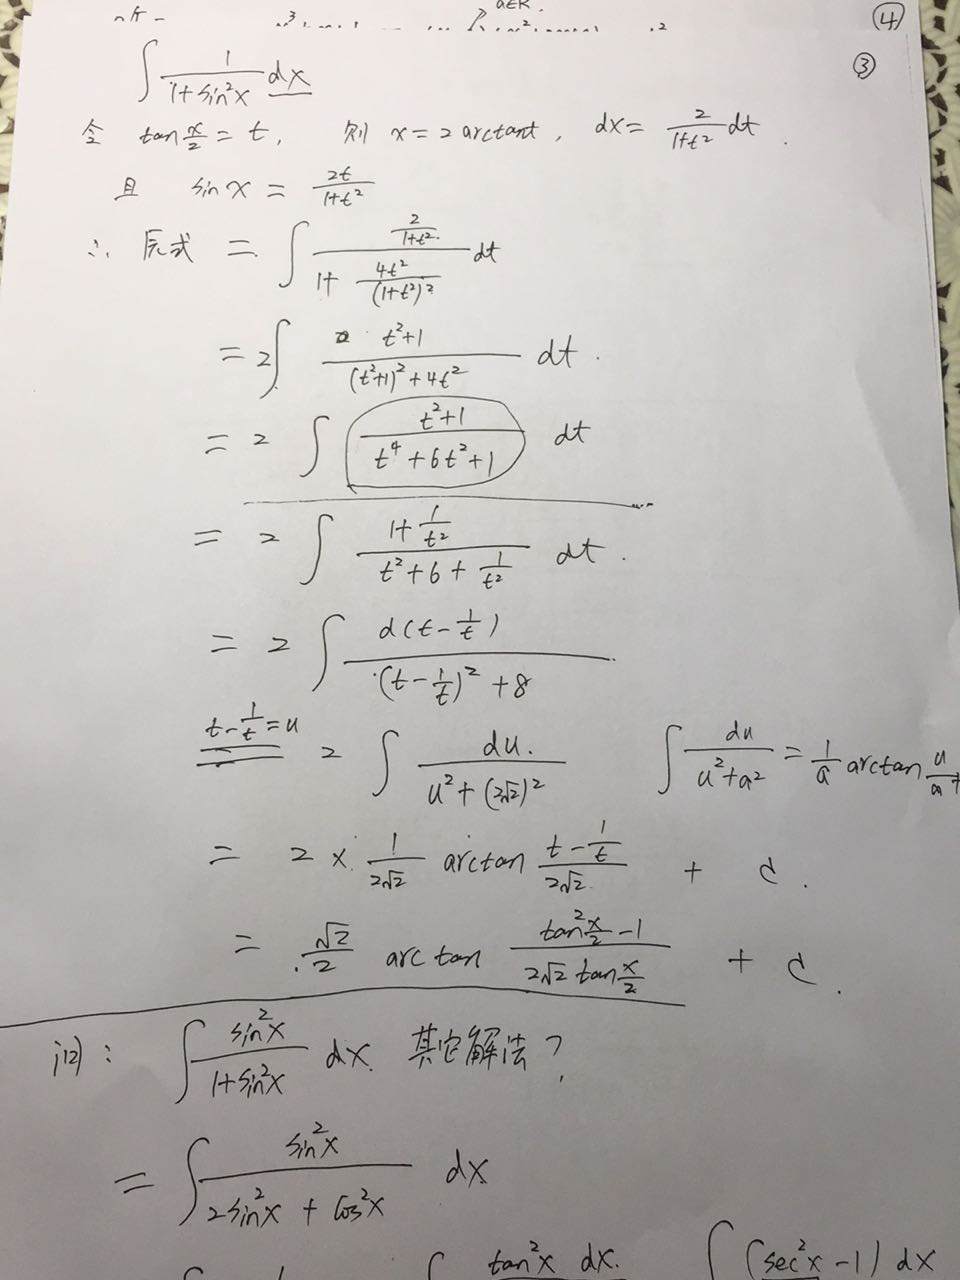 ④
③
∫ 1/(1+sin²x) dx
令 tan x/2 = t, 则 x = 2 arctant, dx = 2/(1+t²) dt.
且 sin x = 2t/(1+t²)
∴ 原式 = ∫ (2/(1+t²))/(1+ 4t²/(1+t²)²) dt
= 2∫ (t²+1)/((t²+1)²+4t²) dt.
= 2 ∫ (t²+1)/(t⁴+6t²+1) dt
= 2 ∫ (1+1/t²)/(t²+6+1/t²) dt.
= 2 ∫ d(t-1/t)/((t-1/t)²+8)
t-1/t=u 2 ∫ du./(u²+(2√2)²) ∫ du/(u²+a²) = 1/a arctan u/a +
= 2 × 1/(2√2) arctan (t-1/t)/(2√2) + C.
= √2/2 arctan (tan² x/2 -1)/(2√2 tan x/2) + C.
问: ∫ sin²x/(1+sin²x) dx 其它解法?
= ∫ sin²x/(2sin²x + cos²x) dx
tan²x dx. ∫ (sec²x-1) dx